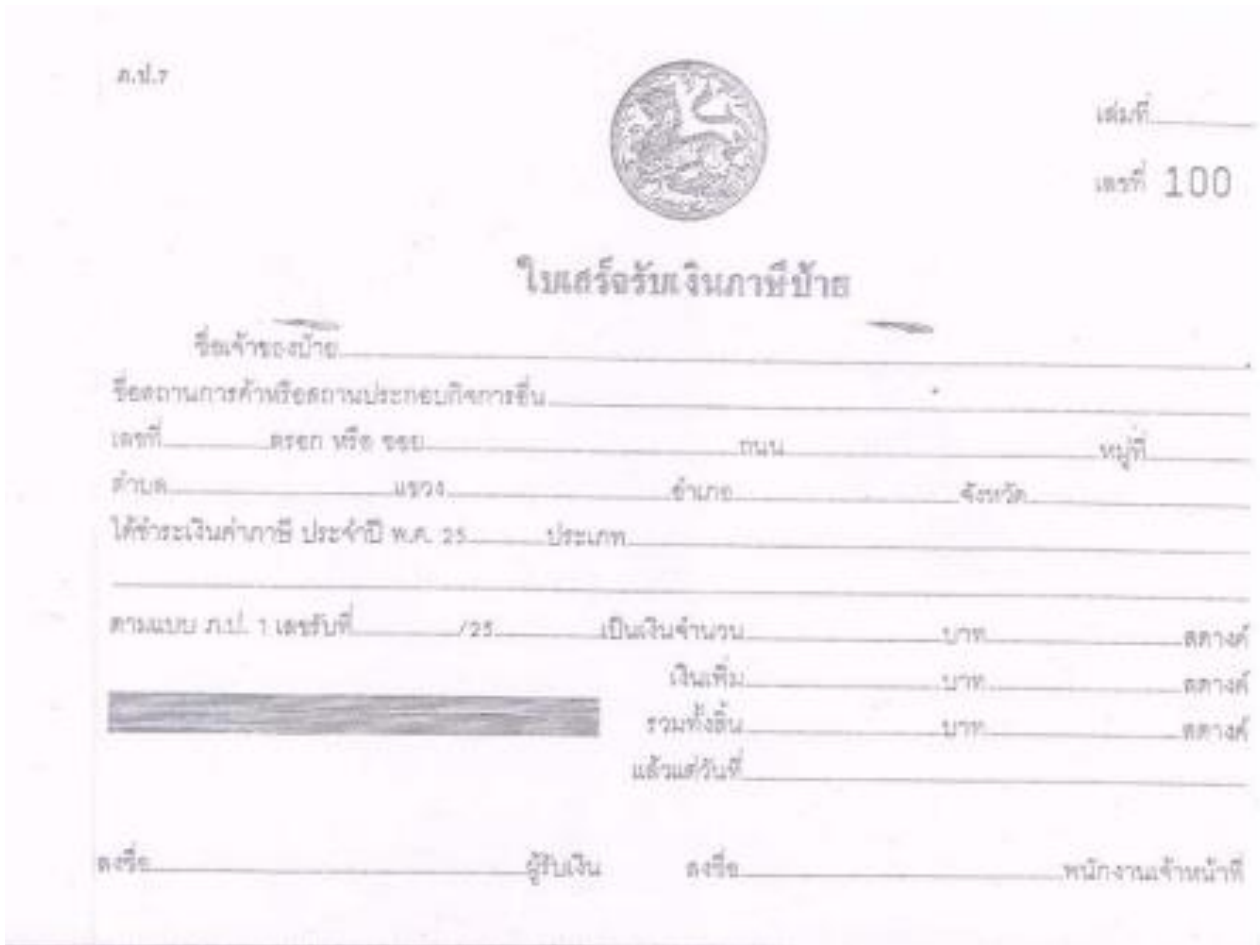 ภ.ป.7
เล่มที่
เลขที่ 100
ใบเสร็จรับเงินภาษีป้าย
ชื่อเจ้าของป้าย
ชื่อสถานการค้าหรือสถานประกอบกิจการอื่น
เลขที่ ตรอก หรือ ซอย ถนน หมู่ที่
ตำบล แขวง อำเภอ จังหวัด
ได้ชำระเงินค่าภาษี ประจำปี พ.ศ. 25 ประเภท
ตามแบบ ภ.ป. 1 เลขรับที่ /25 เป็นเงินจำนวน บาท สตางค์
เงินเพิ่ม บาท สตางค์
รวมทั้งสิ้น บาท สตางค์
แล้วแต่วันที่
ลงชื่อ ผู้รับเงิน ลงชื่อ พนักงานเจ้าหน้าที่